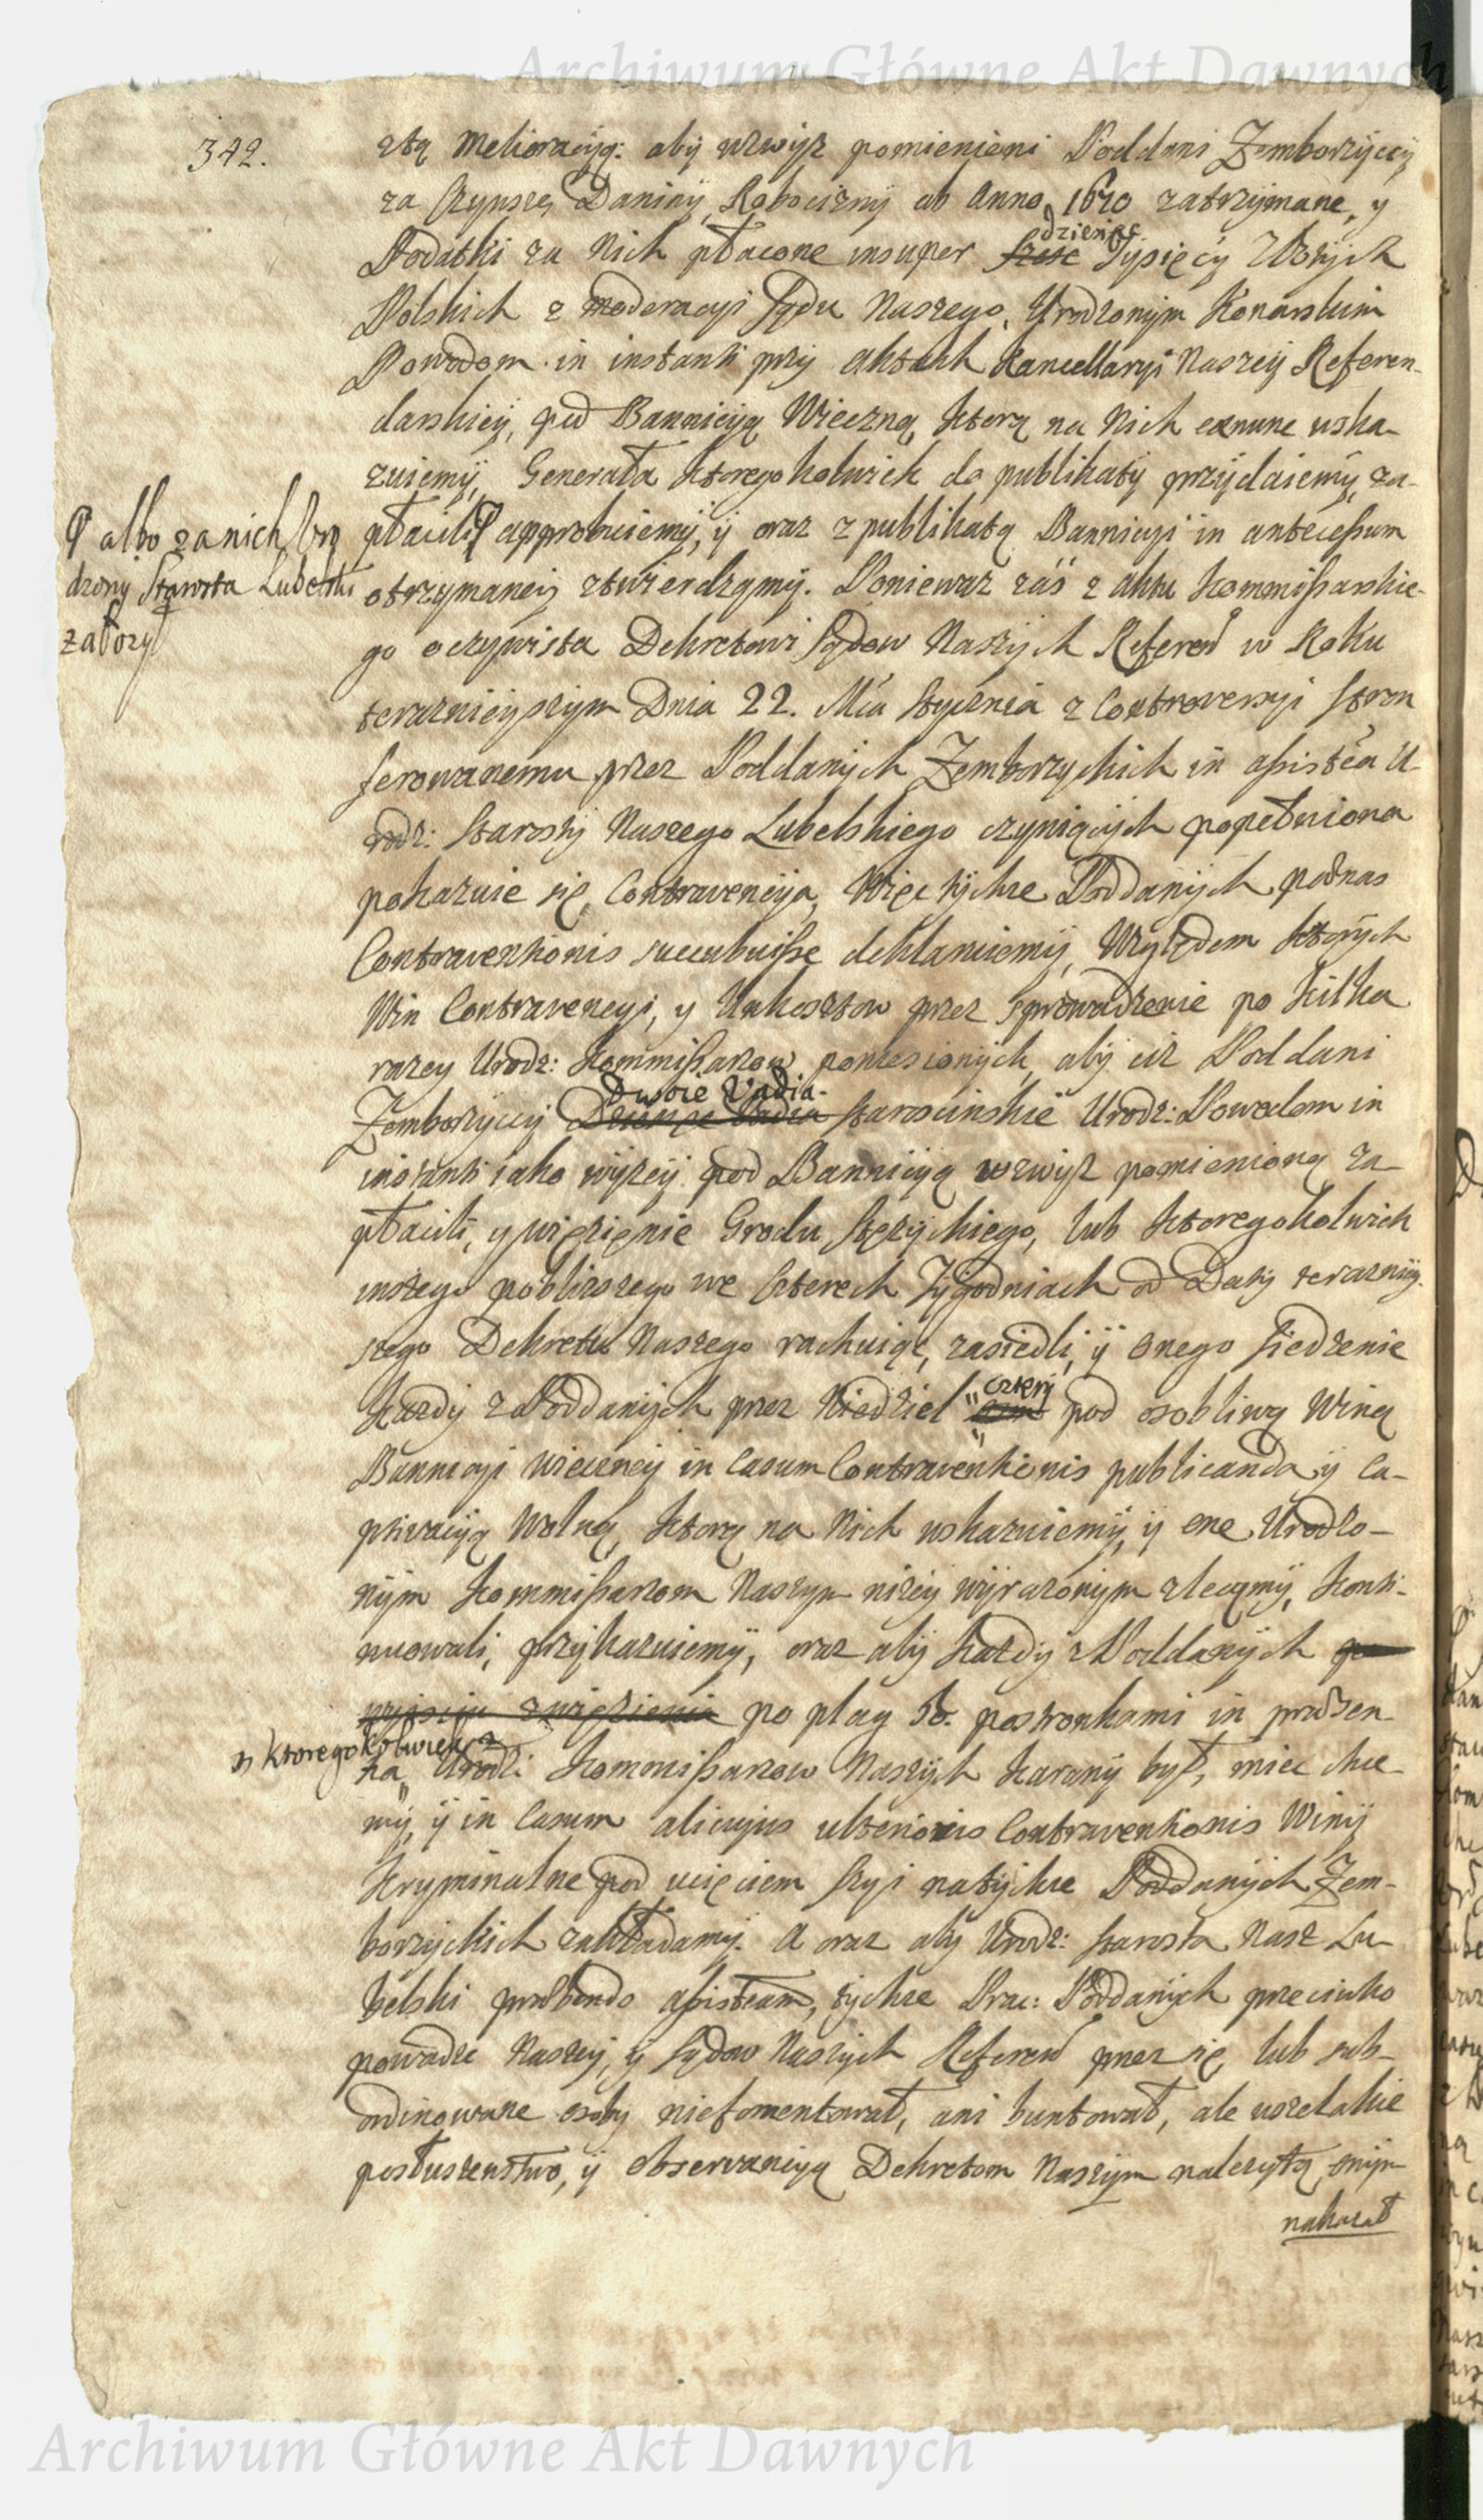 Archiwum Główne Akt Dawnych
342.
ztą Melioracyją: aby wzwyż pomienieni Poddani Zemborzyccy,
za Czynsze, Daniny, Robocizny ab Anno 1670 zatrzymane, y
Podatki za Nich płacone insuper sześć dziewięc Tysięcy Złotych
Polskich z moderacyi Sądu Naszego, Urodzonym Konarskim
Powodom in instanti przy Aktach Kancellaryi Naszey Referen-
darskiey, pod Bannicyą Wieczną, ktorą na Nich exnunc uska-
zuiemy, Generała ktoregokolwiek do publikaty przydaiemy, za-
płacili approbuiemy, y oraz z publikatą Bannicyi in antecessum
albo za nich Uro
dzony Starosta Lubelski
załozy
otrzymaney ztwierdzamy. Ponieważ zaś z Aktu Kommissarskie-
go oczywista Dekretowi Sądow Naszych Referen w Roku
teraznieyszym Dnia 22. Mca Stycznia z Controversyi Stron
ferowanemu przez Poddanych Zemborzyckich in assistea U-
rodz: Starosty Naszego Lubelskiego czyniących popełniona
pokazuie się Contravencya, Więc tychże Poddanych pænas
Contraventionis succubuisse deklaruiemy, Względem ktorych
Win Contravencyi, y Unkosztow przez sprowadzenie po kilka
razey Urodz: Kommissarzow poniesionych, aby ciż Poddani
Zemborzyccy Dwoie Vadia Starościnskie Urodz: Powodom in
instanti iako wyzey pod Bannicyą wzwyż pomienioną za-
płacili, y więzienie Grodu Stęzyckiego, lub ktoregokolwiek
inszego poblizszego we Czterech Tygodniach od Daty terazniey-
szego Dekretu Naszego rachuiąc, zasiedli, y onego siedzenie
kazdy z Poddanych przez Niedziel cztery pod osobliwą Winą
Bannicyi wieczney in Casum Contraventionis publicanda y Ca-
ptivacyą Wolną, ktorą na Nich wskazuiemy, y one Urodzo-
nym Kommissarzom Naszym niżey wyrazonym zlecamy, konti-
nuowali, przykazuiemy, oraz aby kazdy z Poddanych po
wyisciu z więzienia po plag 50. postronkami in præsen-
n ktoregokolwiek z
tia Urodz: Kommissarzow Naszych karany był, miec chce-
my, y in Casum alicujus ulterioris Contraventionis Winy
Kryminalne pod ucięciem szyi natychże Poddanych Zem-
borzyckich zakładamy. A oraz aby Urodz: Starosta Nasz Lu-
belski præbendo assisteam, tychże Prac: Poddanych przeciwko
powadze Naszey, y Sądow Naszych Referen przez się, lub sub-
ordinowane osoby niefomentował, ani buntował, ale wszelakie
posłuszenstwo, y observancyą Dekretom Naszym nalezytą onym
nakazał
Archiwum Główne Akt Dawnych